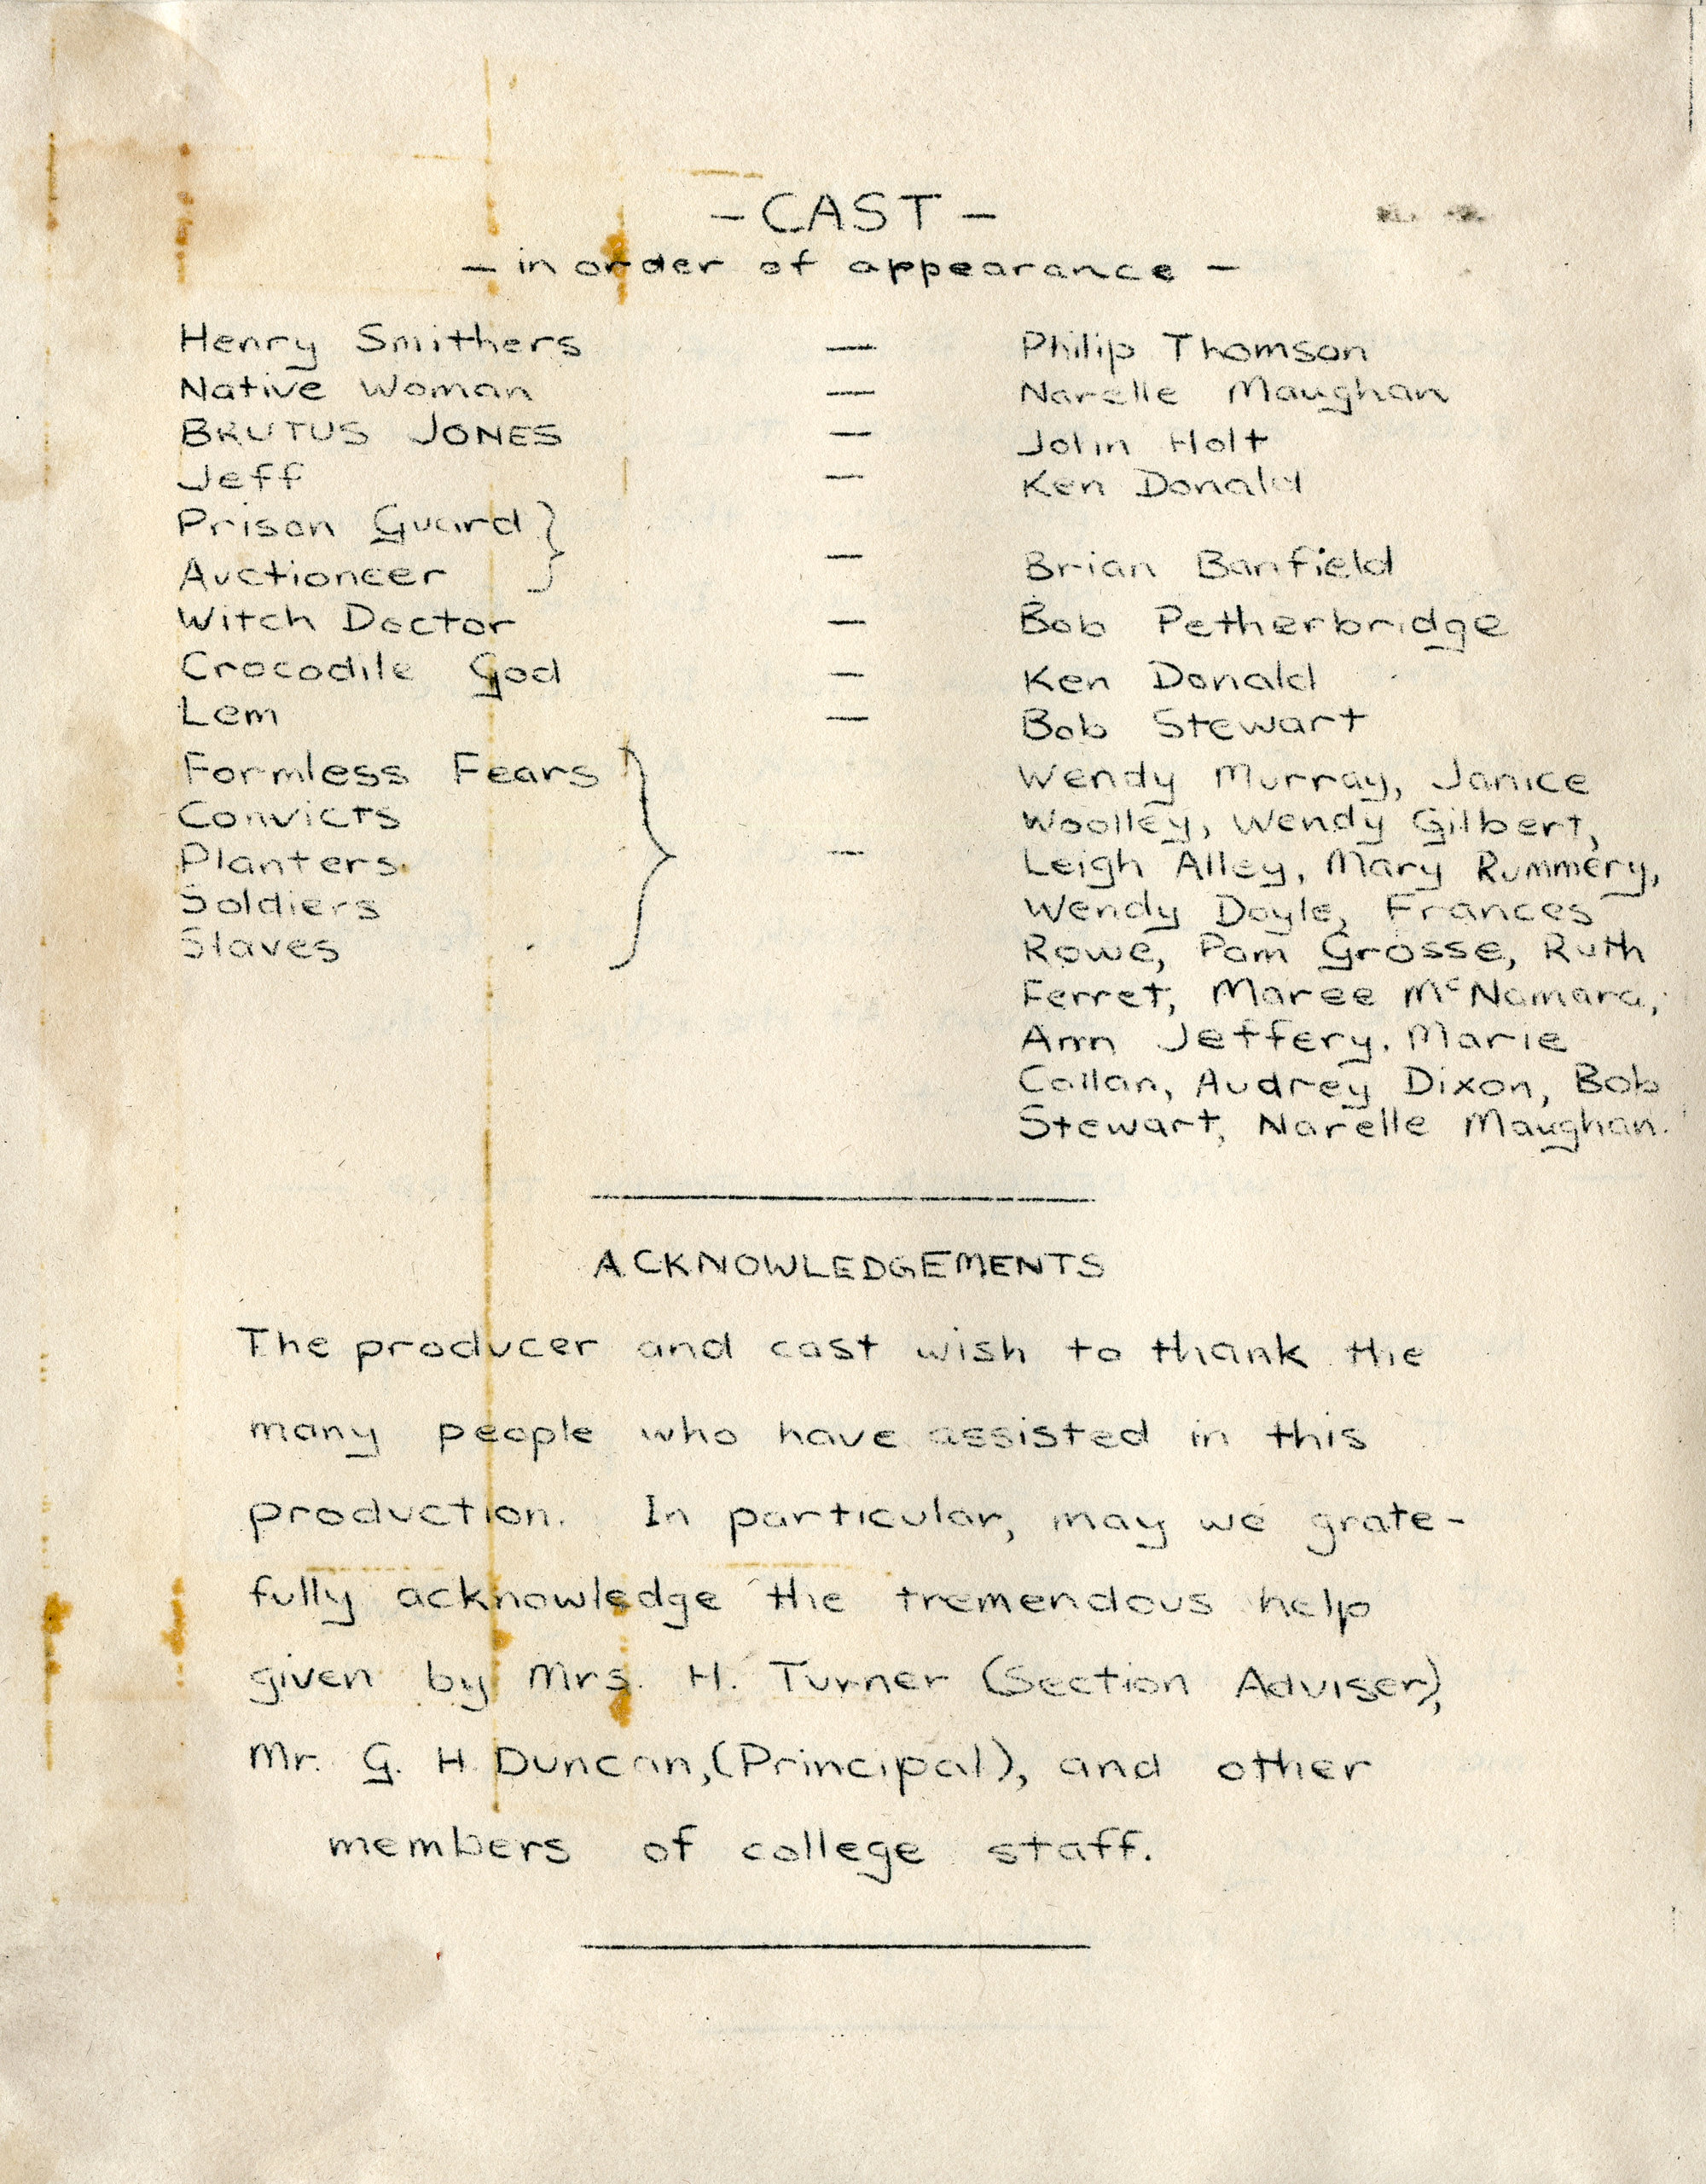 - CAST -
- in order of appearance -
Henry Smithers - Philip Thomson
Native Woman - Narelle Maughan
BRUTUS JONES - John Holt
Jeff - Ken Donald
Prison Guard }
Auctioneer } - Brian Banfield
Witch Doctor - Bob Petherbridge
Crocodile God - Ken Donald
Lem - Bob Stewart
Formless Fears } Wendy Murray, Janice
Convicts Woolley, Wendy Gilbert,
Planters - Leigh Alley, Mary Rummery,
Soldiers Wendy Doyle, Frances
Slaves Rowe, Pam Grosse, Ruth
Ferret, Maree McNamara,
Ann Jeffery, Marie
Callan, Audrey Dixon, Bob
Stewart, Narelle Maughan.
ACKNOWLEDGEMENTS
The producer and cast wish to thank the
many people who have assisted in this
production. In particular, may we grate-
fully acknowledge the tremendous help
given by Mrs. H. Turner (Section Adviser),
Mr. G. H. Duncan, (Principal), and other
members of college staff.